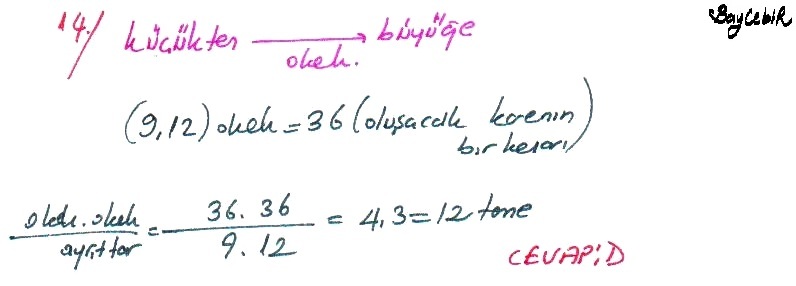 BayCebiR
14./ küçükten → büyüğe
okek.
(9,12) okek = 36 (oluşacak karenin
bir kenarı)
okek . okek / ayrıtlar = 36 . 36 / 9 . 12 = 4.3 = 12 tane
CEVAP: D